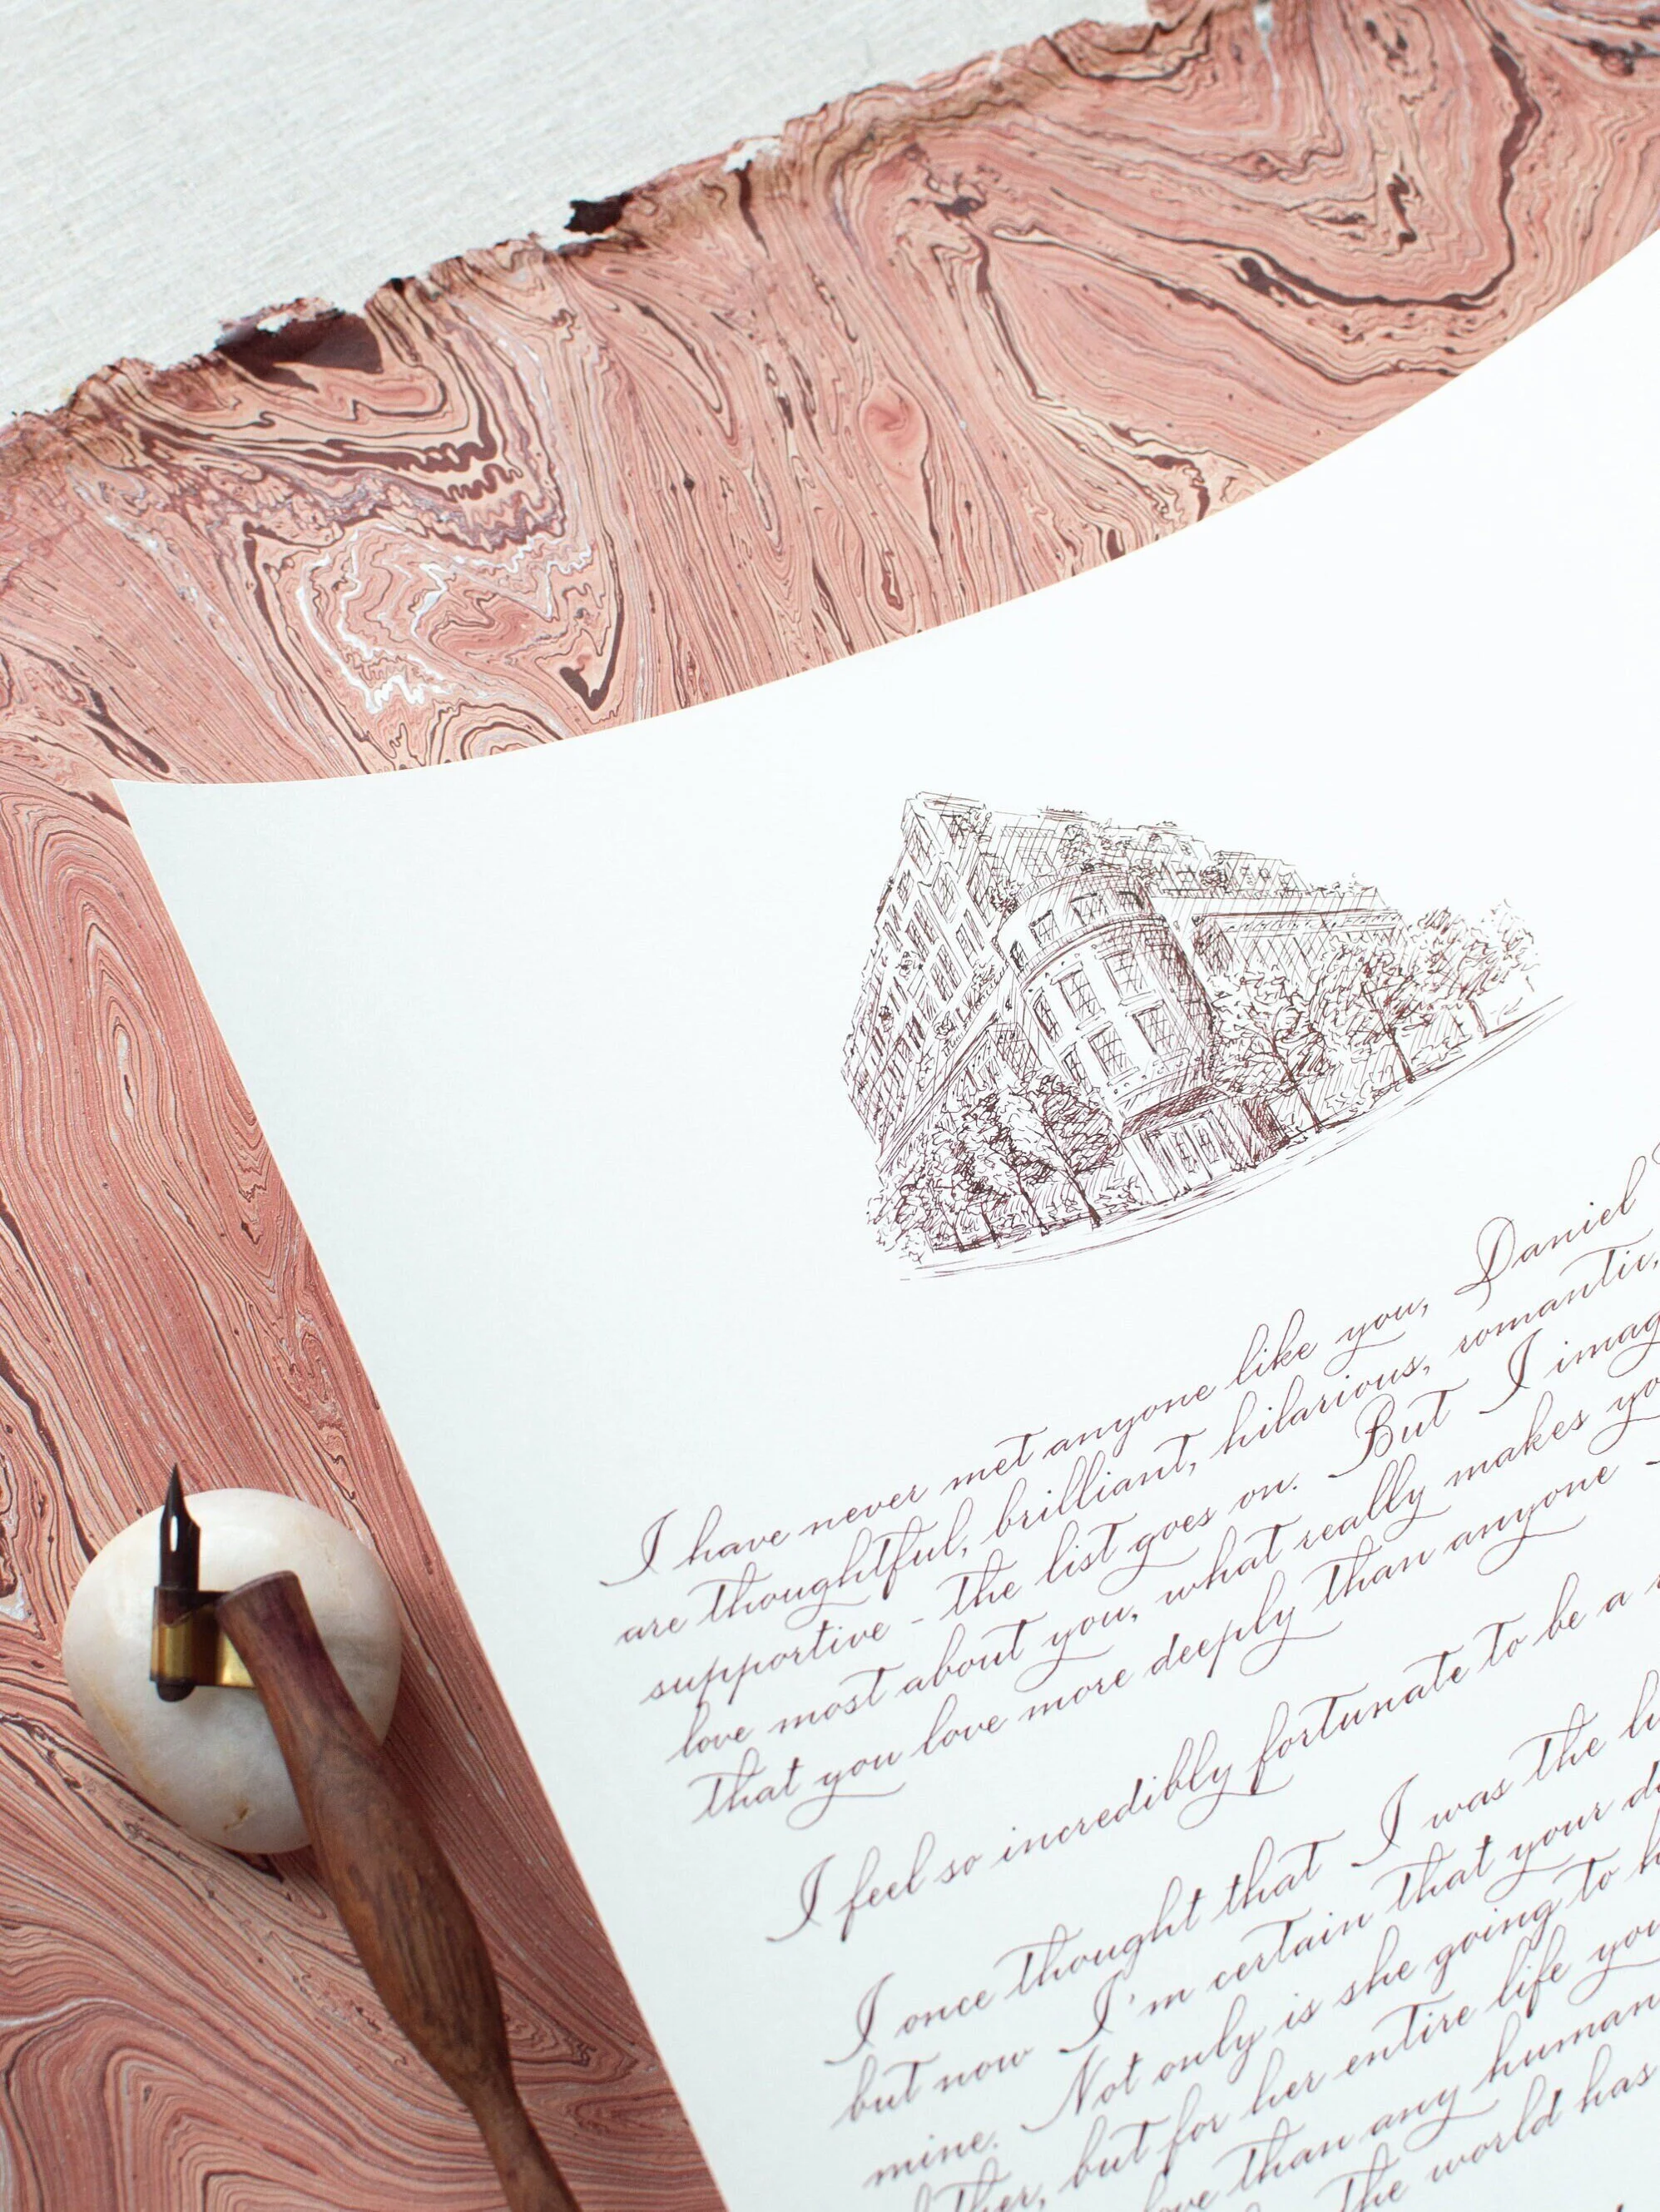 I have never met anyone like you, Daniel
are thoughtful, brilliant, hilarious, romantic,
supportive - the list goes on. But I imag
love most about you, what really makes yo
that you love more deeply than anyone -
I feel so incredibly fortunate to be a
I once thought that I was the lu
but now I'm certain that your d
mine. Not only is she going to h
but for her entire life you
love than any human
The world has